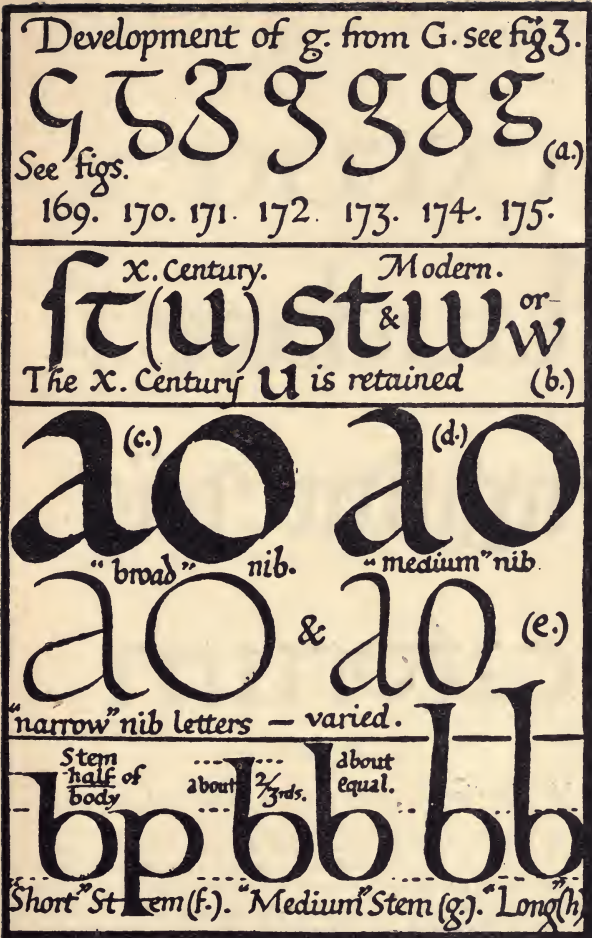 Development of g. from G. see fig 3.
ϛ Ꞇ Ᵹ g g g g
(a.)
See figs.
169. 170. 171. 172. 173. 174. 175.
X. Century. Modern.
ſt (u) st & w or w
The X. Century u is retained (b.)
a (c.) o a (d.) o
"broad" nib. "medium" nib
a o & a o (e.)
"narrow" nib letters — varied.
Stem half of body
about 2/3rds.
about equal.
b p b b b b
"Short" Stem (f.). "Medium" Stem (g.). "Long" (h)